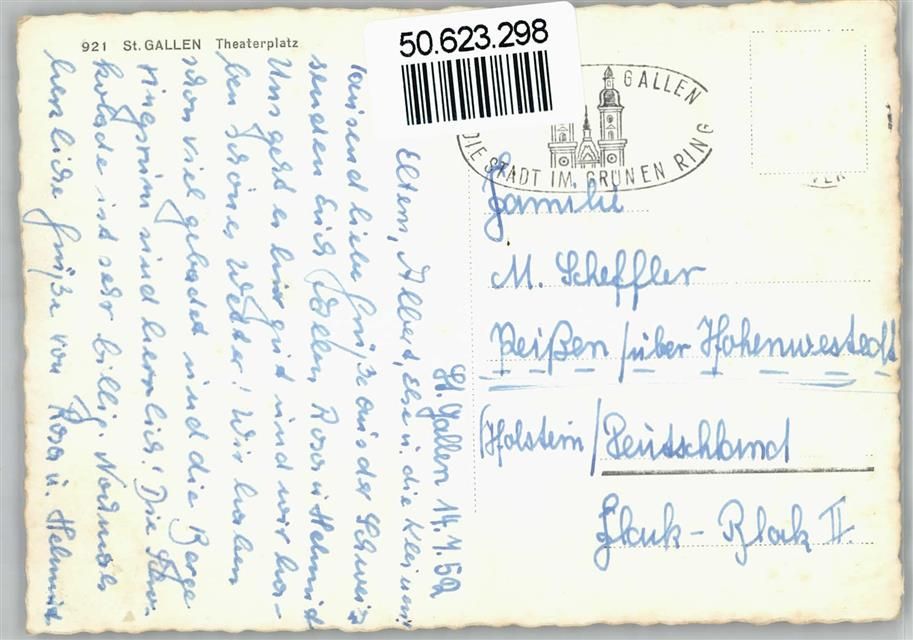 921 St. GALLEN Theaterplatz
50.623.298
GALLEN
DIE STADT IM GRÜNEN RING
St. Gallen 14.7.59
Eltern, Albert, Else u. die Kleinen
Tausend liebe Grüße aus der Schweiz
senden Euch Allen Rosa u Helmut
Uns geht es hier gut und wir ha-
ben schönes Wetter! Wir haben
schon viel gebadet und die Berge
ringsum sind herrlich! Die Scho-
kolade ist sehr billig. Nochmals
herzliche Grüße von Rosa u. Helmut
Familie
M. Scheffler
Reißen / über Hohenwestedt
(Holstein) / Deutschland
Block II.